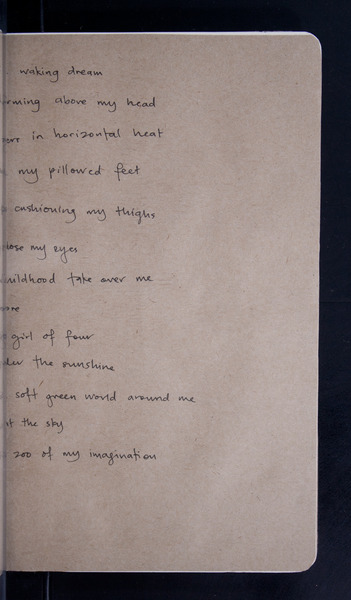 waking dream
above my head
in horizontal heat
my pillowed feet
cushioning my thighs
my eyes
take over me
girl of four
the sunshine
soft green world around me
the sky
zoo of my imagination